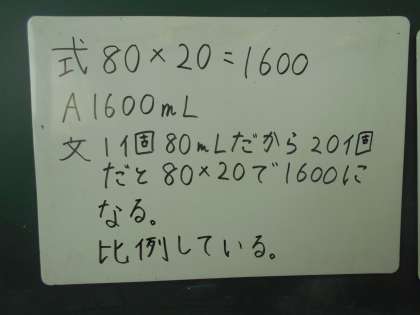 式 80×20=1600
A 1600mL
文 1個80mLだから20個
だと80×20で1600に
なる。
比例している。